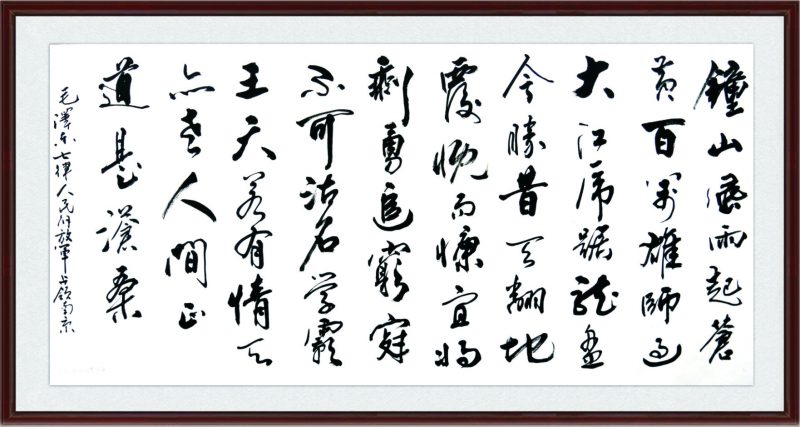 鐘山風雨起蒼
黄百萬雄師過
大江虎踞龍盤
今勝昔天翻地
覆慨而慷宜将
剩勇追窮寇
不可沽名学霸
王天若有情天
亦老人間正
道是滄桑
毛澤东七律人民解放軍占領南京